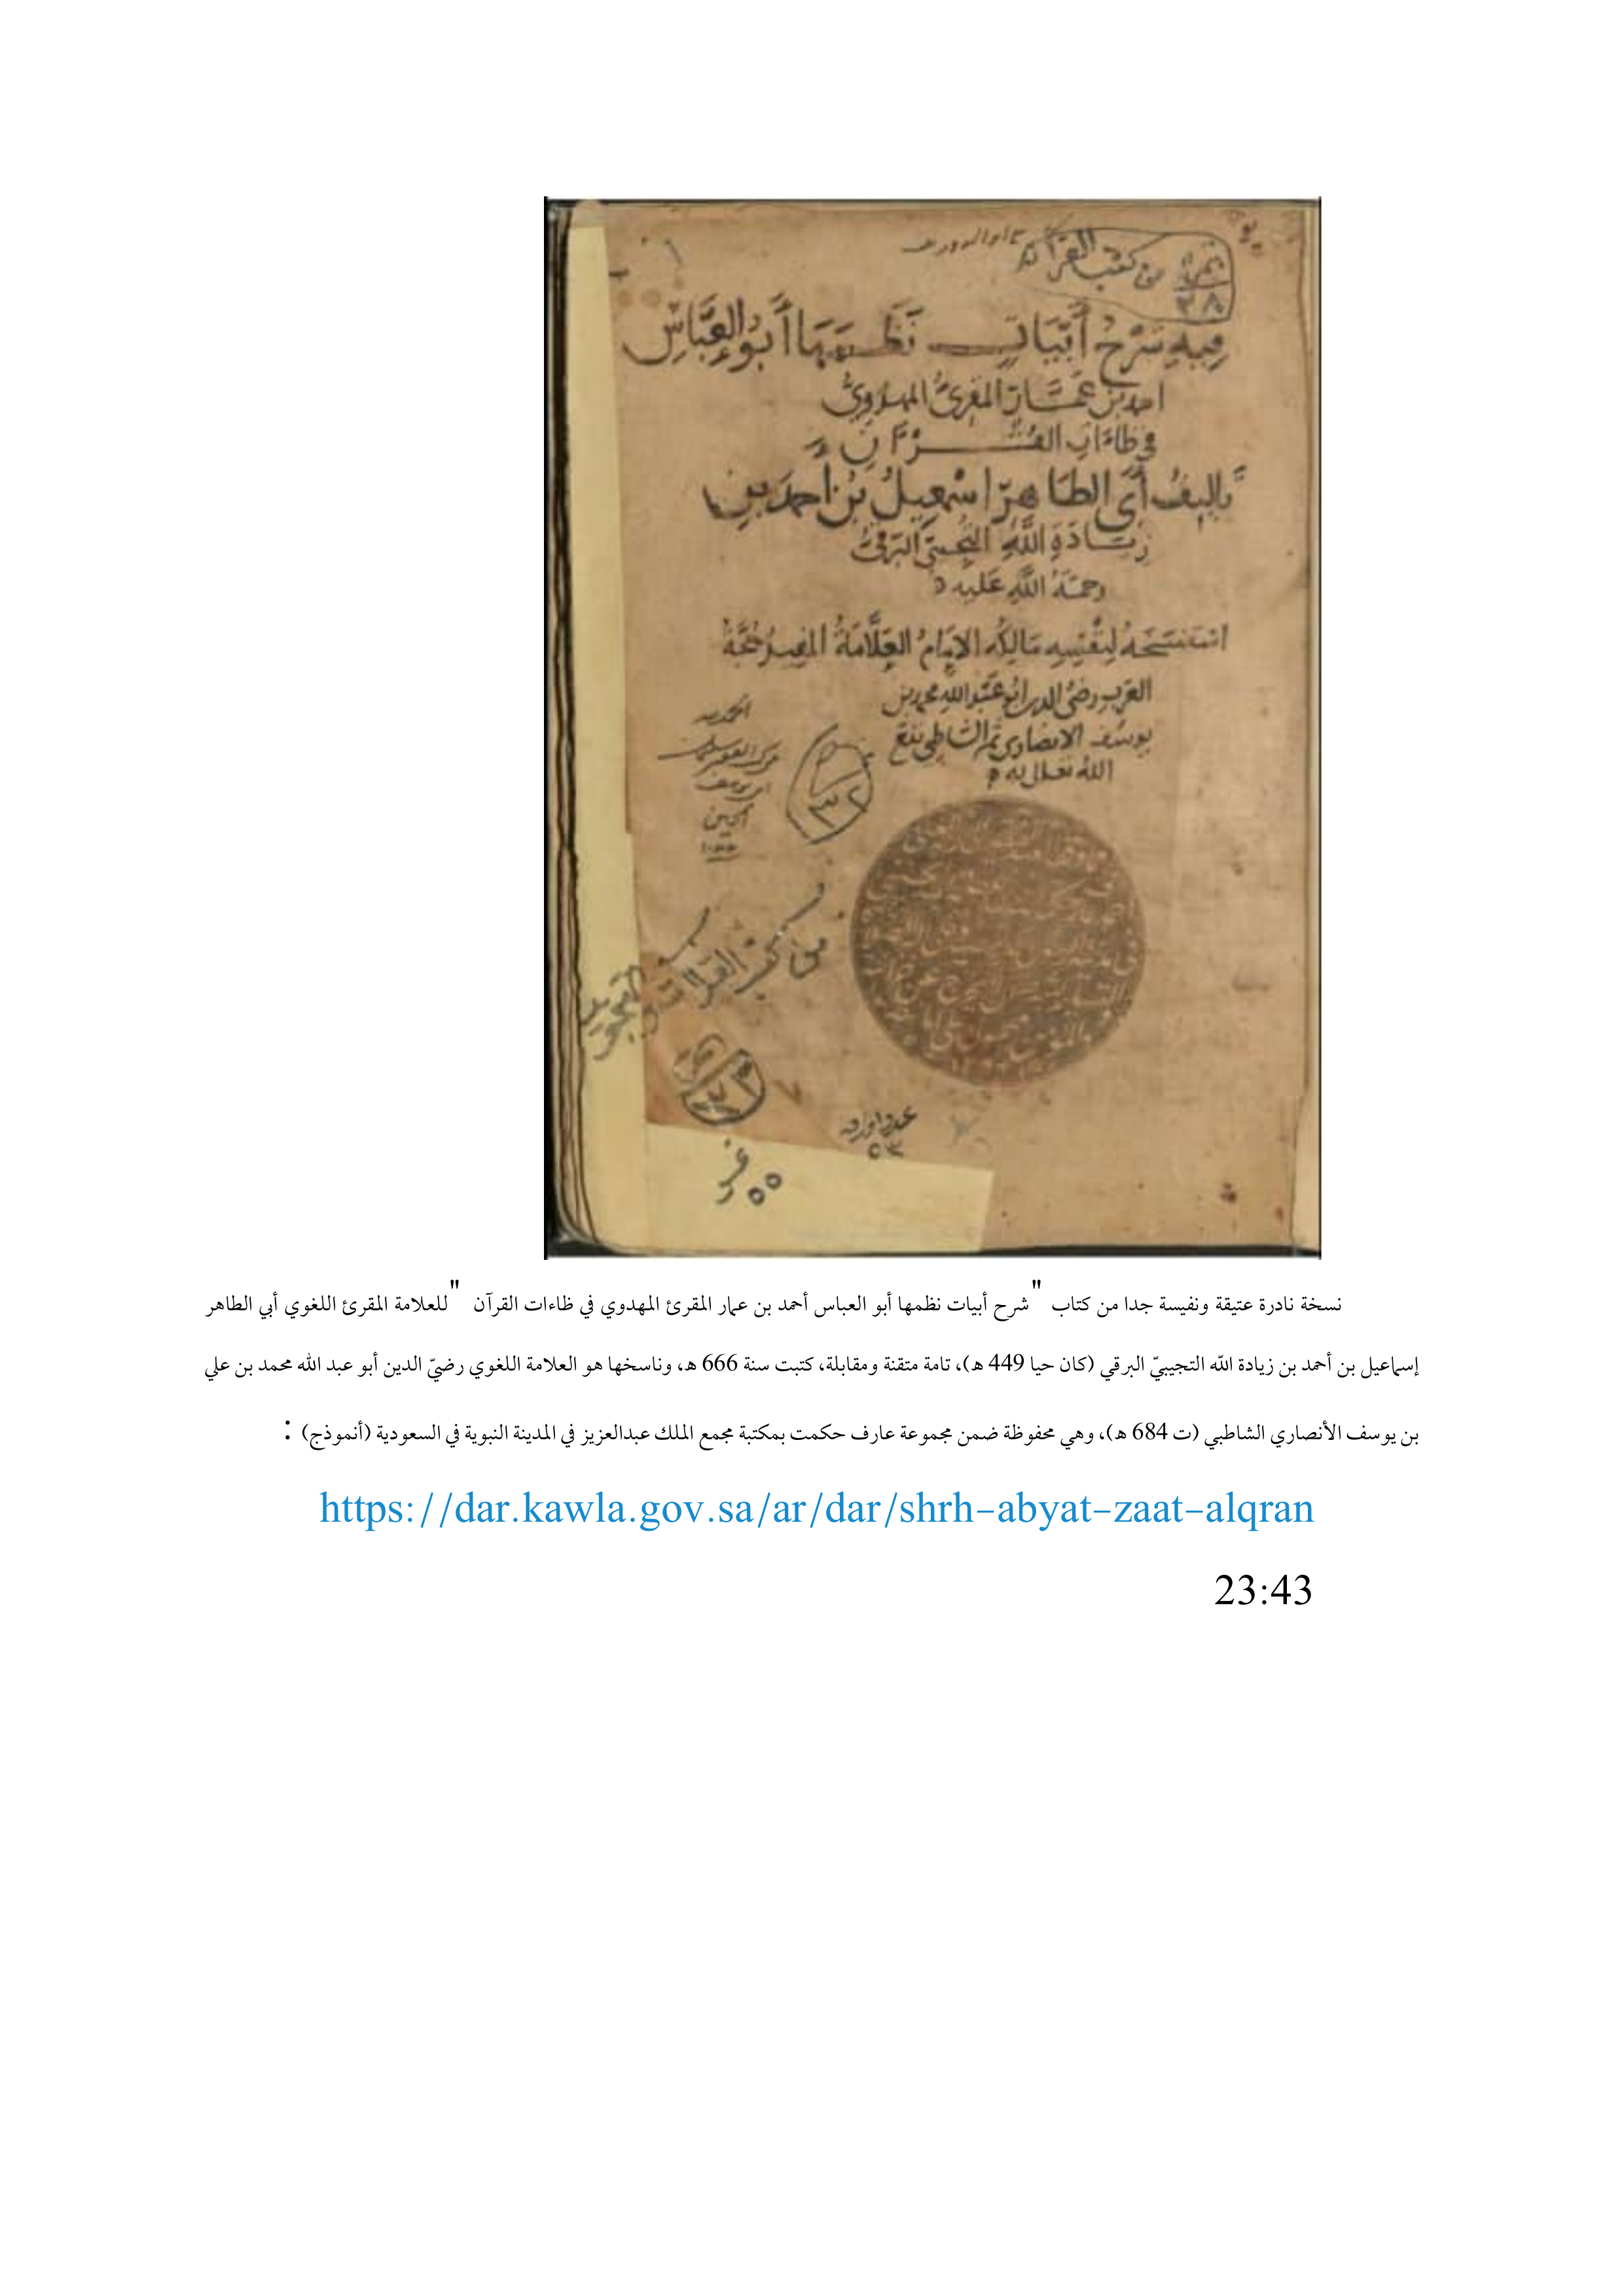 من كتب القراات
نمرة
٣٨
فيه شَرْحُ أَبْيَاتٍ نَظَمَهَا أَبُو العَبَّاسِ
احمد بن عَمَّار المقرئ المهدوي
في ظاءَاتِ القُرْآنِ
تأليف أبي الطَاهِر اسمعيل بن أحمد بن
زيَادَةِ اللَّهِ التجيبي البَرقي
رحمَةُ اللَّهِ عَليه
استنسخه لِنَفْسِهِ مَالِكُه الامَام العَلَّامَةُ المفيد حجَّة
العَرب رضيُّ الدين ابو عَبْد الله محمد بن
يوسف الانصاري ثم الشاطبي نفع
الله تعالى به
الحمد لله
٣٢
من كتب القراات والتجويد
عدد اوراقه
٥٣
نسخة نادرة عتيقة ونفيسة جدا من كتاب "شرح أبيات نظمها أبو العباس أحمد بن عمار المقرئ المهدوي في ظاءات القرآن "للعلامة المقرئ اللغوي أبي الطاهر
إسماعيل بن أحمد بن زيادة الله التجيبيّ البرقي (كان حيا 449 هـ)، تامة متقنة ومقابلة، كتبت سنة 666 هـ، وناسخها هو العلامة اللغوي رضيّ الدين أبو عبد الله محمد بن علي
بن يوسف الأنصاري الشاطبي (ت 684 هـ)، وهي محفوظة ضمن مجموعة عارف حكمت بمكتبة مجمع الملك عبدالعزيز في المدينة النبوية في السعودية (أنموذج) :
https://dar.kawla.gov.sa/ar/dar/shrh-abyat-zaat-alqran
23:43